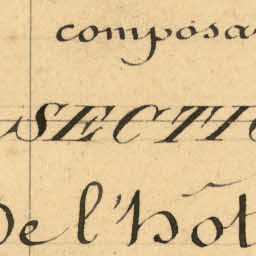 composa
SECTIO
De l'hôt